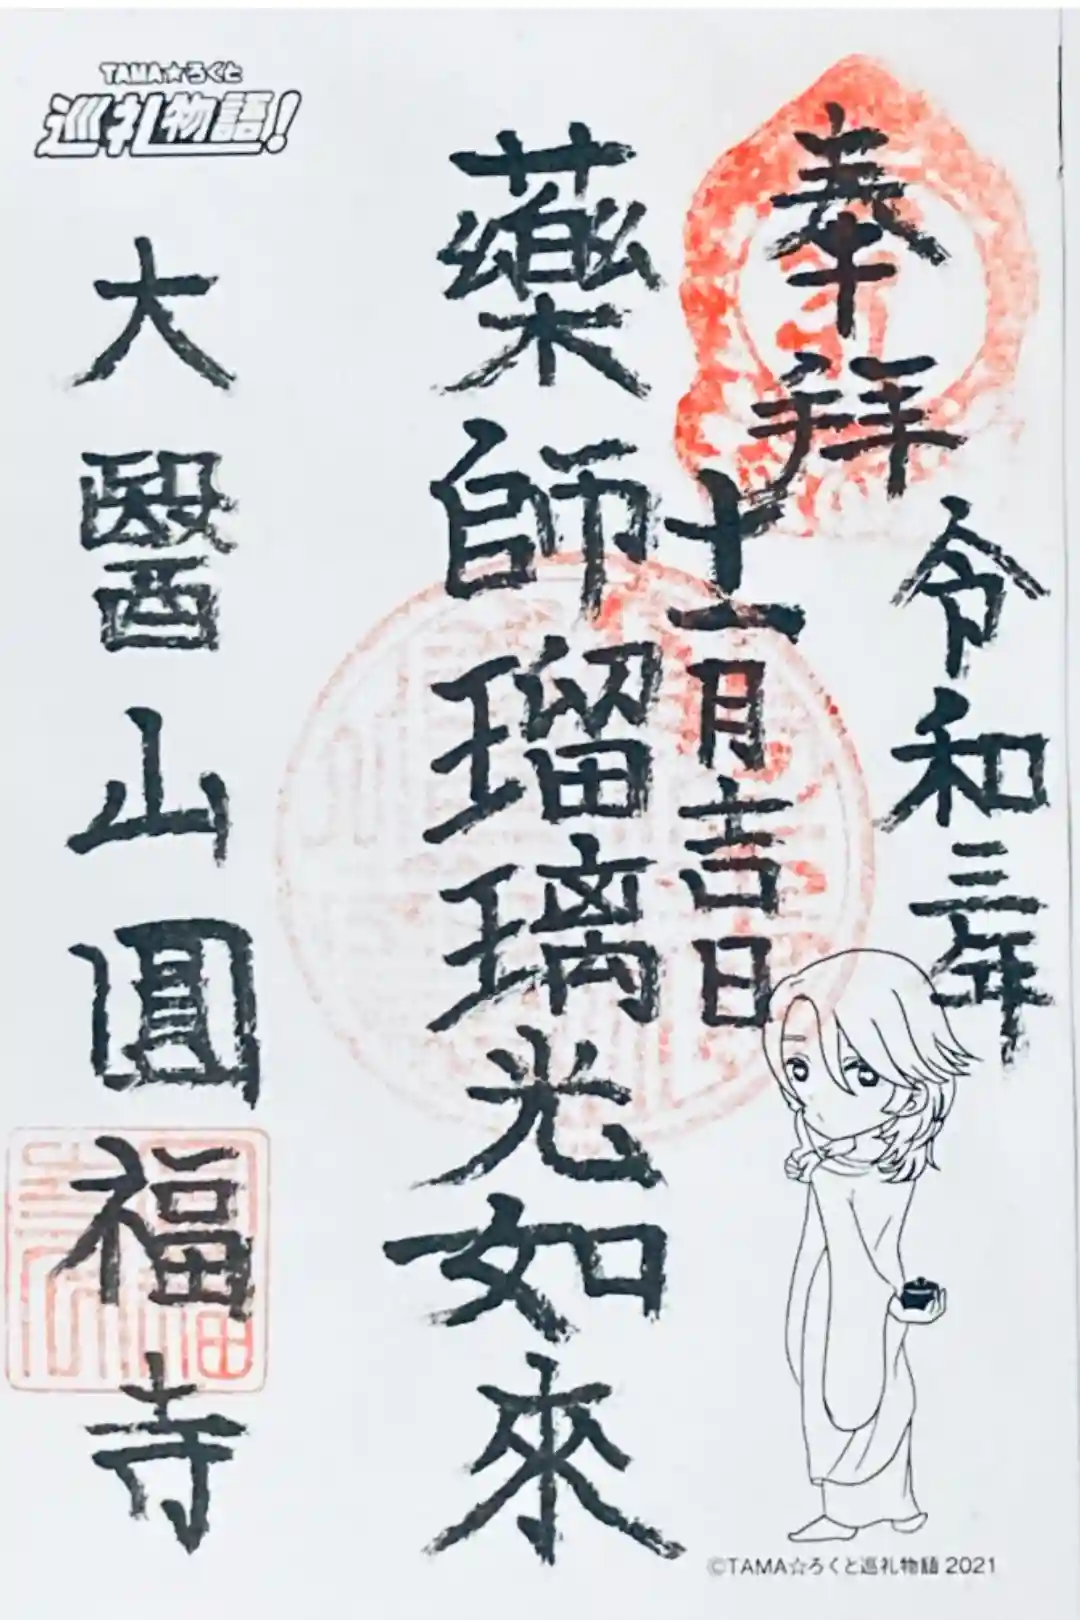 TAMA☆ろくと
巡礼物語!
奉拜
令和三年
十一月吉日
藥師瑠璃光如來
大醫山圓福寺
©TAMA☆ろくと巡礼物語 2021